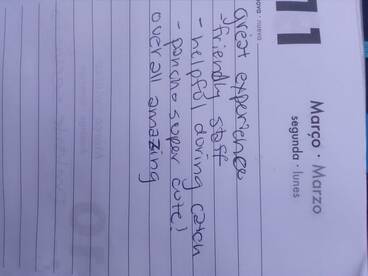 nova · nueva
11
Março · Marzo
segunda · lunes
great experience
- friendly staff
- helpful during catch
- poncho super cute!
over all amazing